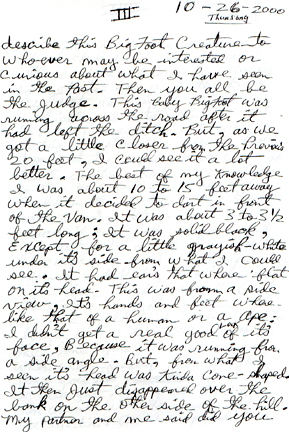 III
10-26-2000
Thursday
describe this Bigfoot Creature to
who ever may be interested or
curious about what I have seen
in the Past. Then you all be
the Judge. This Baby Bigfoot was
running across the road after it
had left the ditch. But, as we
got a little closer from the Previous
20 feet, I could see it a lot
better. The best of my knowledge
I was about 10 to 15 feet away
when it decided to dart in front
of the Van. It was about 3 to 3½
feet long; It was solid black;
Except for a little grayish-white
under its side from what I could
see. It had ears that where flat
on its head. This was from a side
view. Its hands and feet where
like that of a human or a Ape.
I didn't get a real good look of its
face, Because it was running from
a side angle. But, from what I
seen its head was kinda cone-shaped.
It then Just disappeared over the
bank on the other side of the hill.
My partner and me said did you